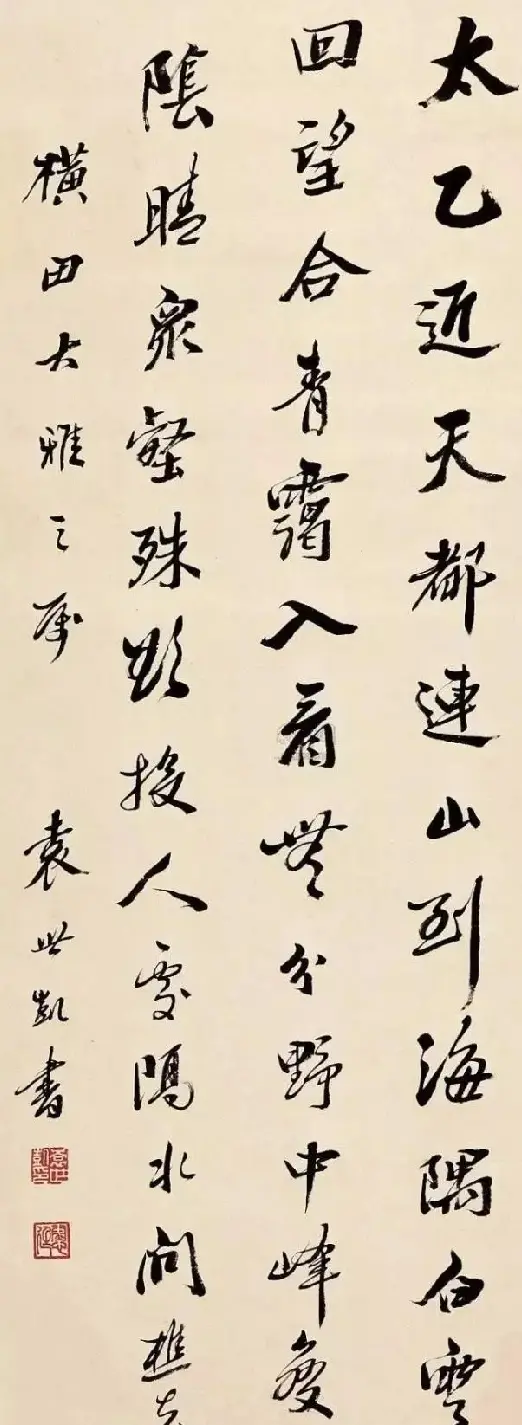 太乙近天都連山到海隅白雲
回望合青靄入看無分野中峰變
陰晴眾壑殊欲投人處隔水問樵夫
橫田大雅之屬
袁世凱書